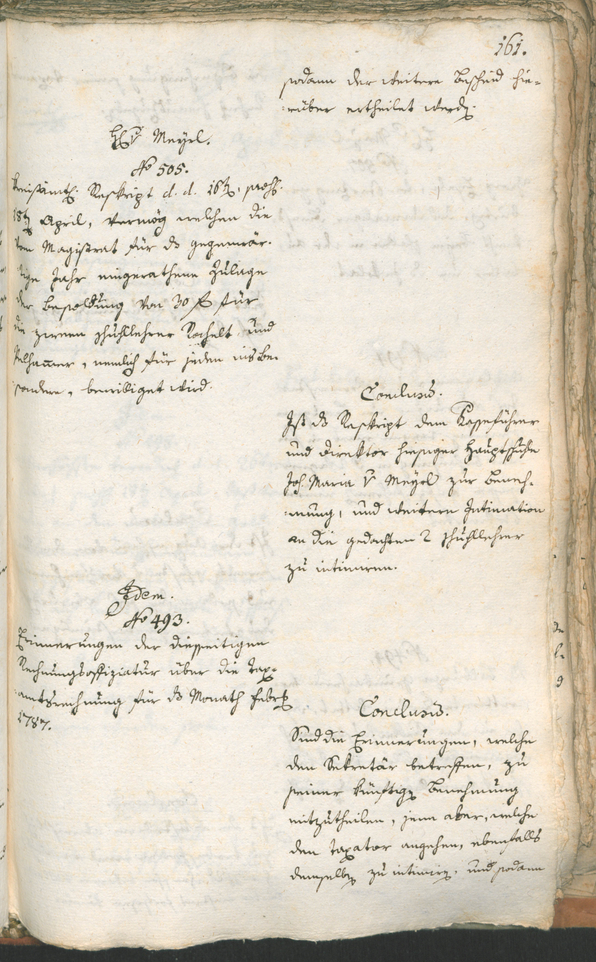 161.
sodann der weitere Bescheid hie-
rüber ertheilet werde.
H. v Meyrl.
No 505.
Kreisämtl. Reskript d. d. 16t, prs.
18t April, vermög welchen die
dem Magistrat für ds gegenwär-
tige Jahr eingerathene Zulage
der Besoldung von 30 f für
die zween Schullehrer und
, nemlich für jeden insbe-
sondere, bewilliget wird.
Conclusum.
Ist ds Reskript dem Kasseführer
und Direktor hiesiger Hauptschule
Joh. Maria v Meyrl zur Beneh-
mung, und weitern Intimation
an die gedachten 2 Schullehrer
zu intimiren.
Idem.
No 493.
Erinnerungen der diesseitigen
Rechnungsoffiziatur über die Tax-
amtsrechnung für ds Monath Febr
1787.
Conclusum.
Sind die Erinnerungen, welche
den Sekretär betreffen, zu
seiner künftigen Benehmung
mitzutheilen, jene aber, welche
den Taxator angehen, ebenfalls
demselben zu intimiren, und sodann